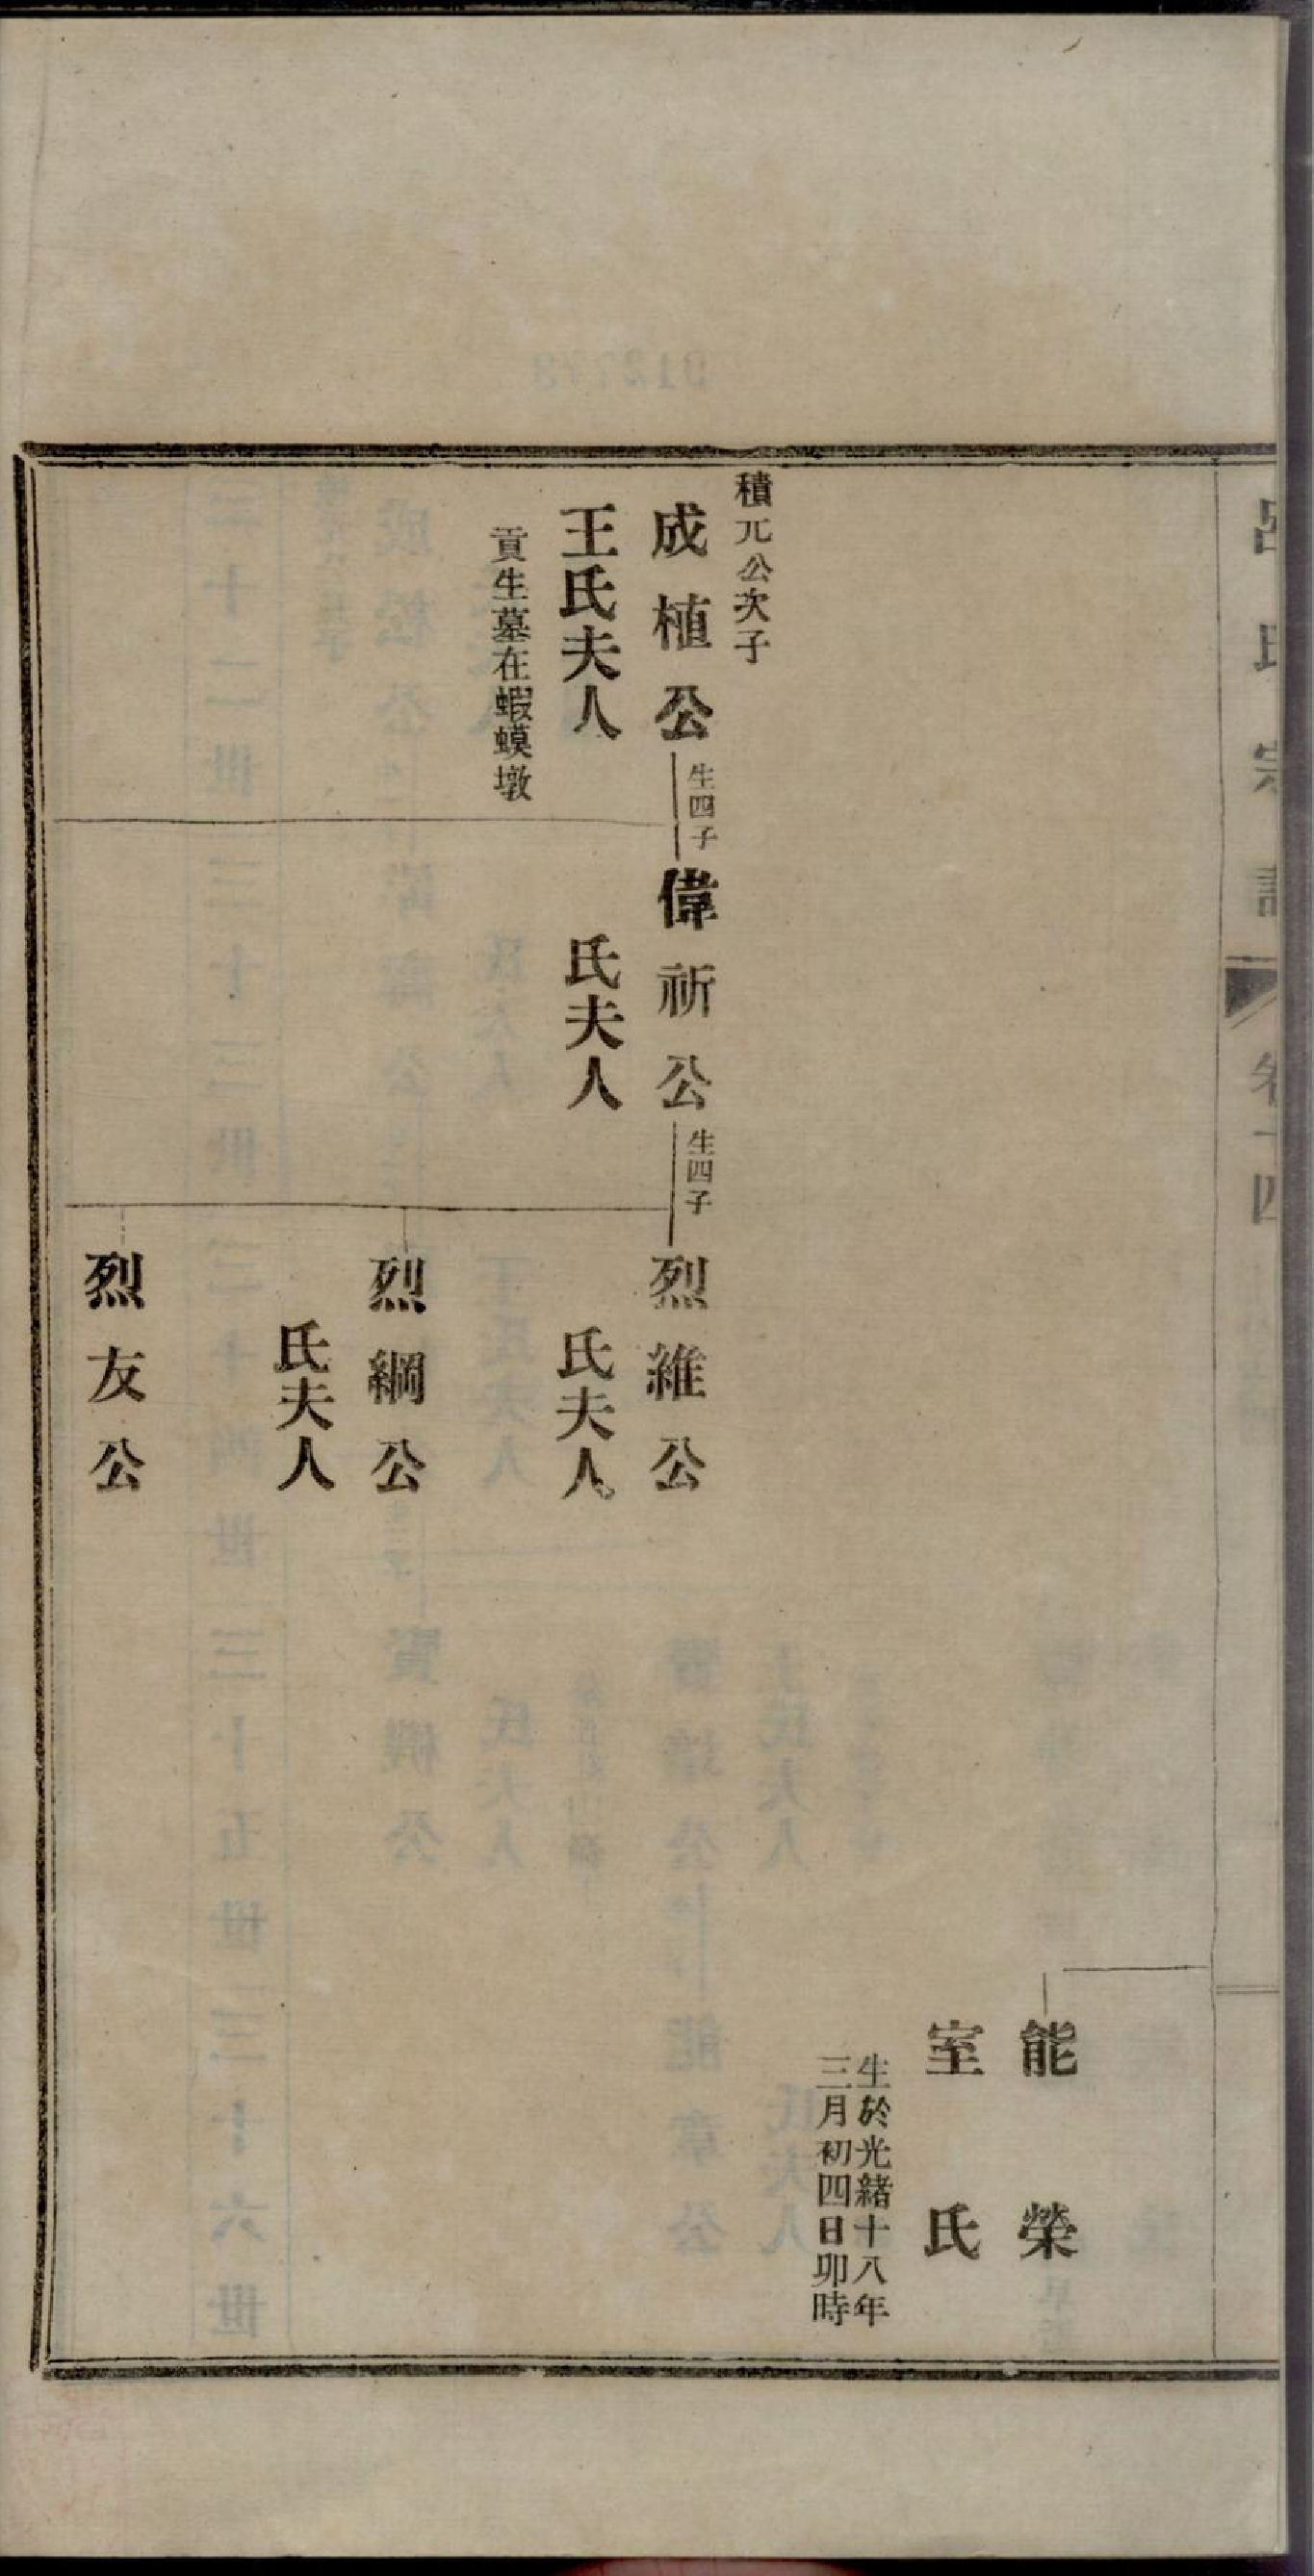 呂氏宗譜
卷十四
能榮
室氏
生於光緒十八年
三月初四日卯時
積元公次子
成植公
生四子
偉祈公
生四子
烈維公
王氏夫人
氏夫人
氏夫人
貢生墓在蝦蟆墩
烈綱公
氏夫人
烈友公